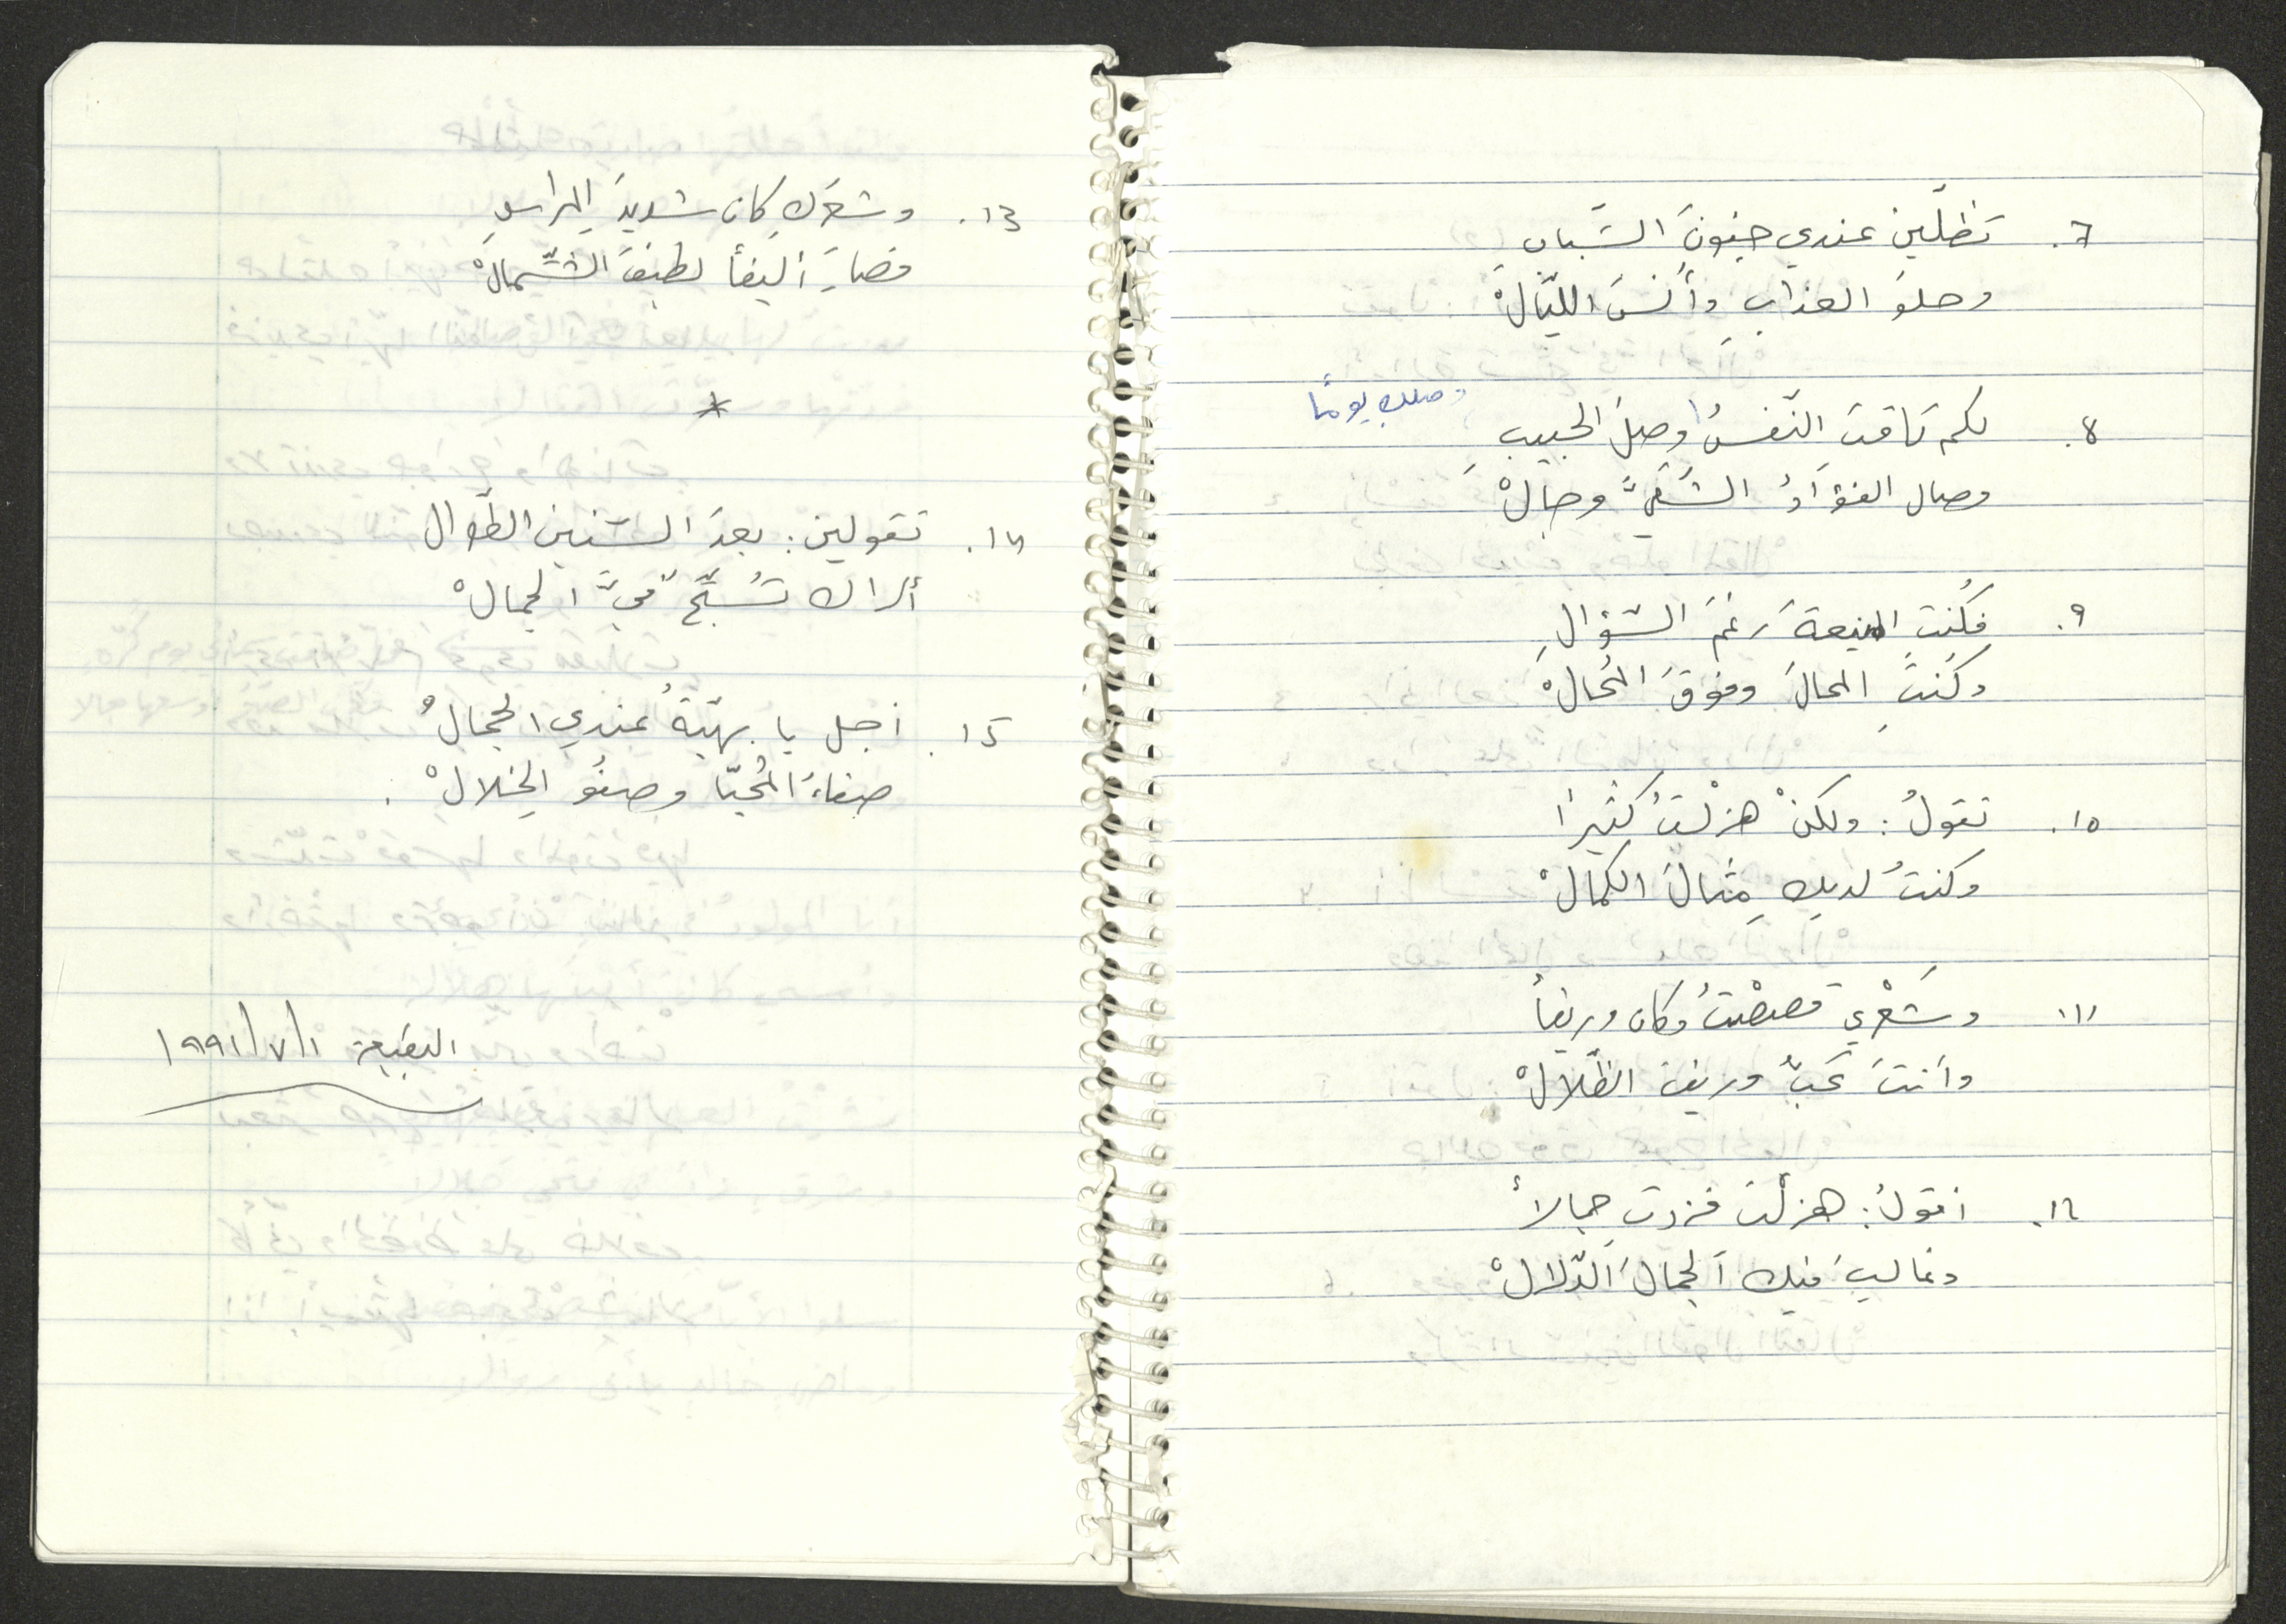 7. تظلّين عندي جنونَ الشّبابِ
وحلوَ العذابِ وأنسَ اللّيالْ
وصلكِ يومًا
8. لكم تاقتِ النّفسُ وصلَ الحبيبِ
وصال الفؤادُ الشّقيُّ وجالْ
٩. فكُنتِ المنيعةَ رغمَ السّؤالِ
وكنتِ المحالَ وفوقَ المُحالْ
١٠. تقولُ: ولكنْ هزلْتُ كثيرًا
وكنتُ لديك مِثالَ الكمالْ
١١. وشَعْري قصصْتُ وكان وريفاً
وأنتَ تحبُّ وريفَ الظّلالْ
١٢. أقولُ: هزلْتِ فزدتِ جمالاً
وغالبَ فيك الجمالَ الدّلالْ
13. وشعرُكِ كان شديدَ المِراسِ
فصارَ أليفاً لطيفَ الشّمالْ
*
١٤. تقولين: بعدَ السّنينِ الطّوال
أراك تُسبّحُ فيَّ الجمالْ
١5. أجل يا بهيّةُ عندي الجمالْ
صفاءَ المُحيّا وصفوُ الخِلالْ.
البقيعة ١/٧/١٩٩١